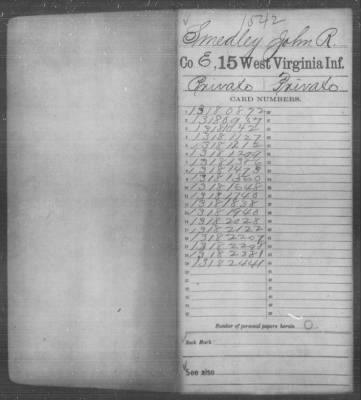 1542
Smedley, John R.
Co E, 15 West Virginia Inf.
Private Private
CARD NUMBERS.
13180892
13180937
13181142
13181127
13181212
13181299
13181386
13181473
13181560
13181648
13181740
13181838
13181940
13182028
13182122
13182207
13182293
13182381
13182441
Number of personal papers herein 0
Book Mark:
See also